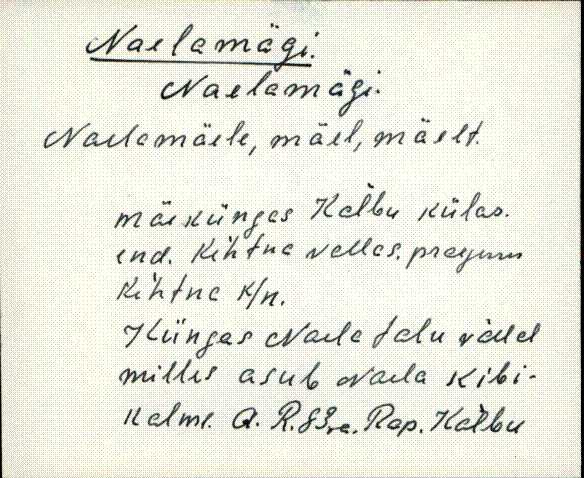 Naelamägi.
Naelamägi.
Naelamäele, mäel, mäelt.
mäeküngas Kalbu külas.
end. Kehtna vallas. praegune
Kehtna k/n.
Küngas Naela talu väljal
milles asub Naela kivi-
kalme. A. R. Rap. Kalbu